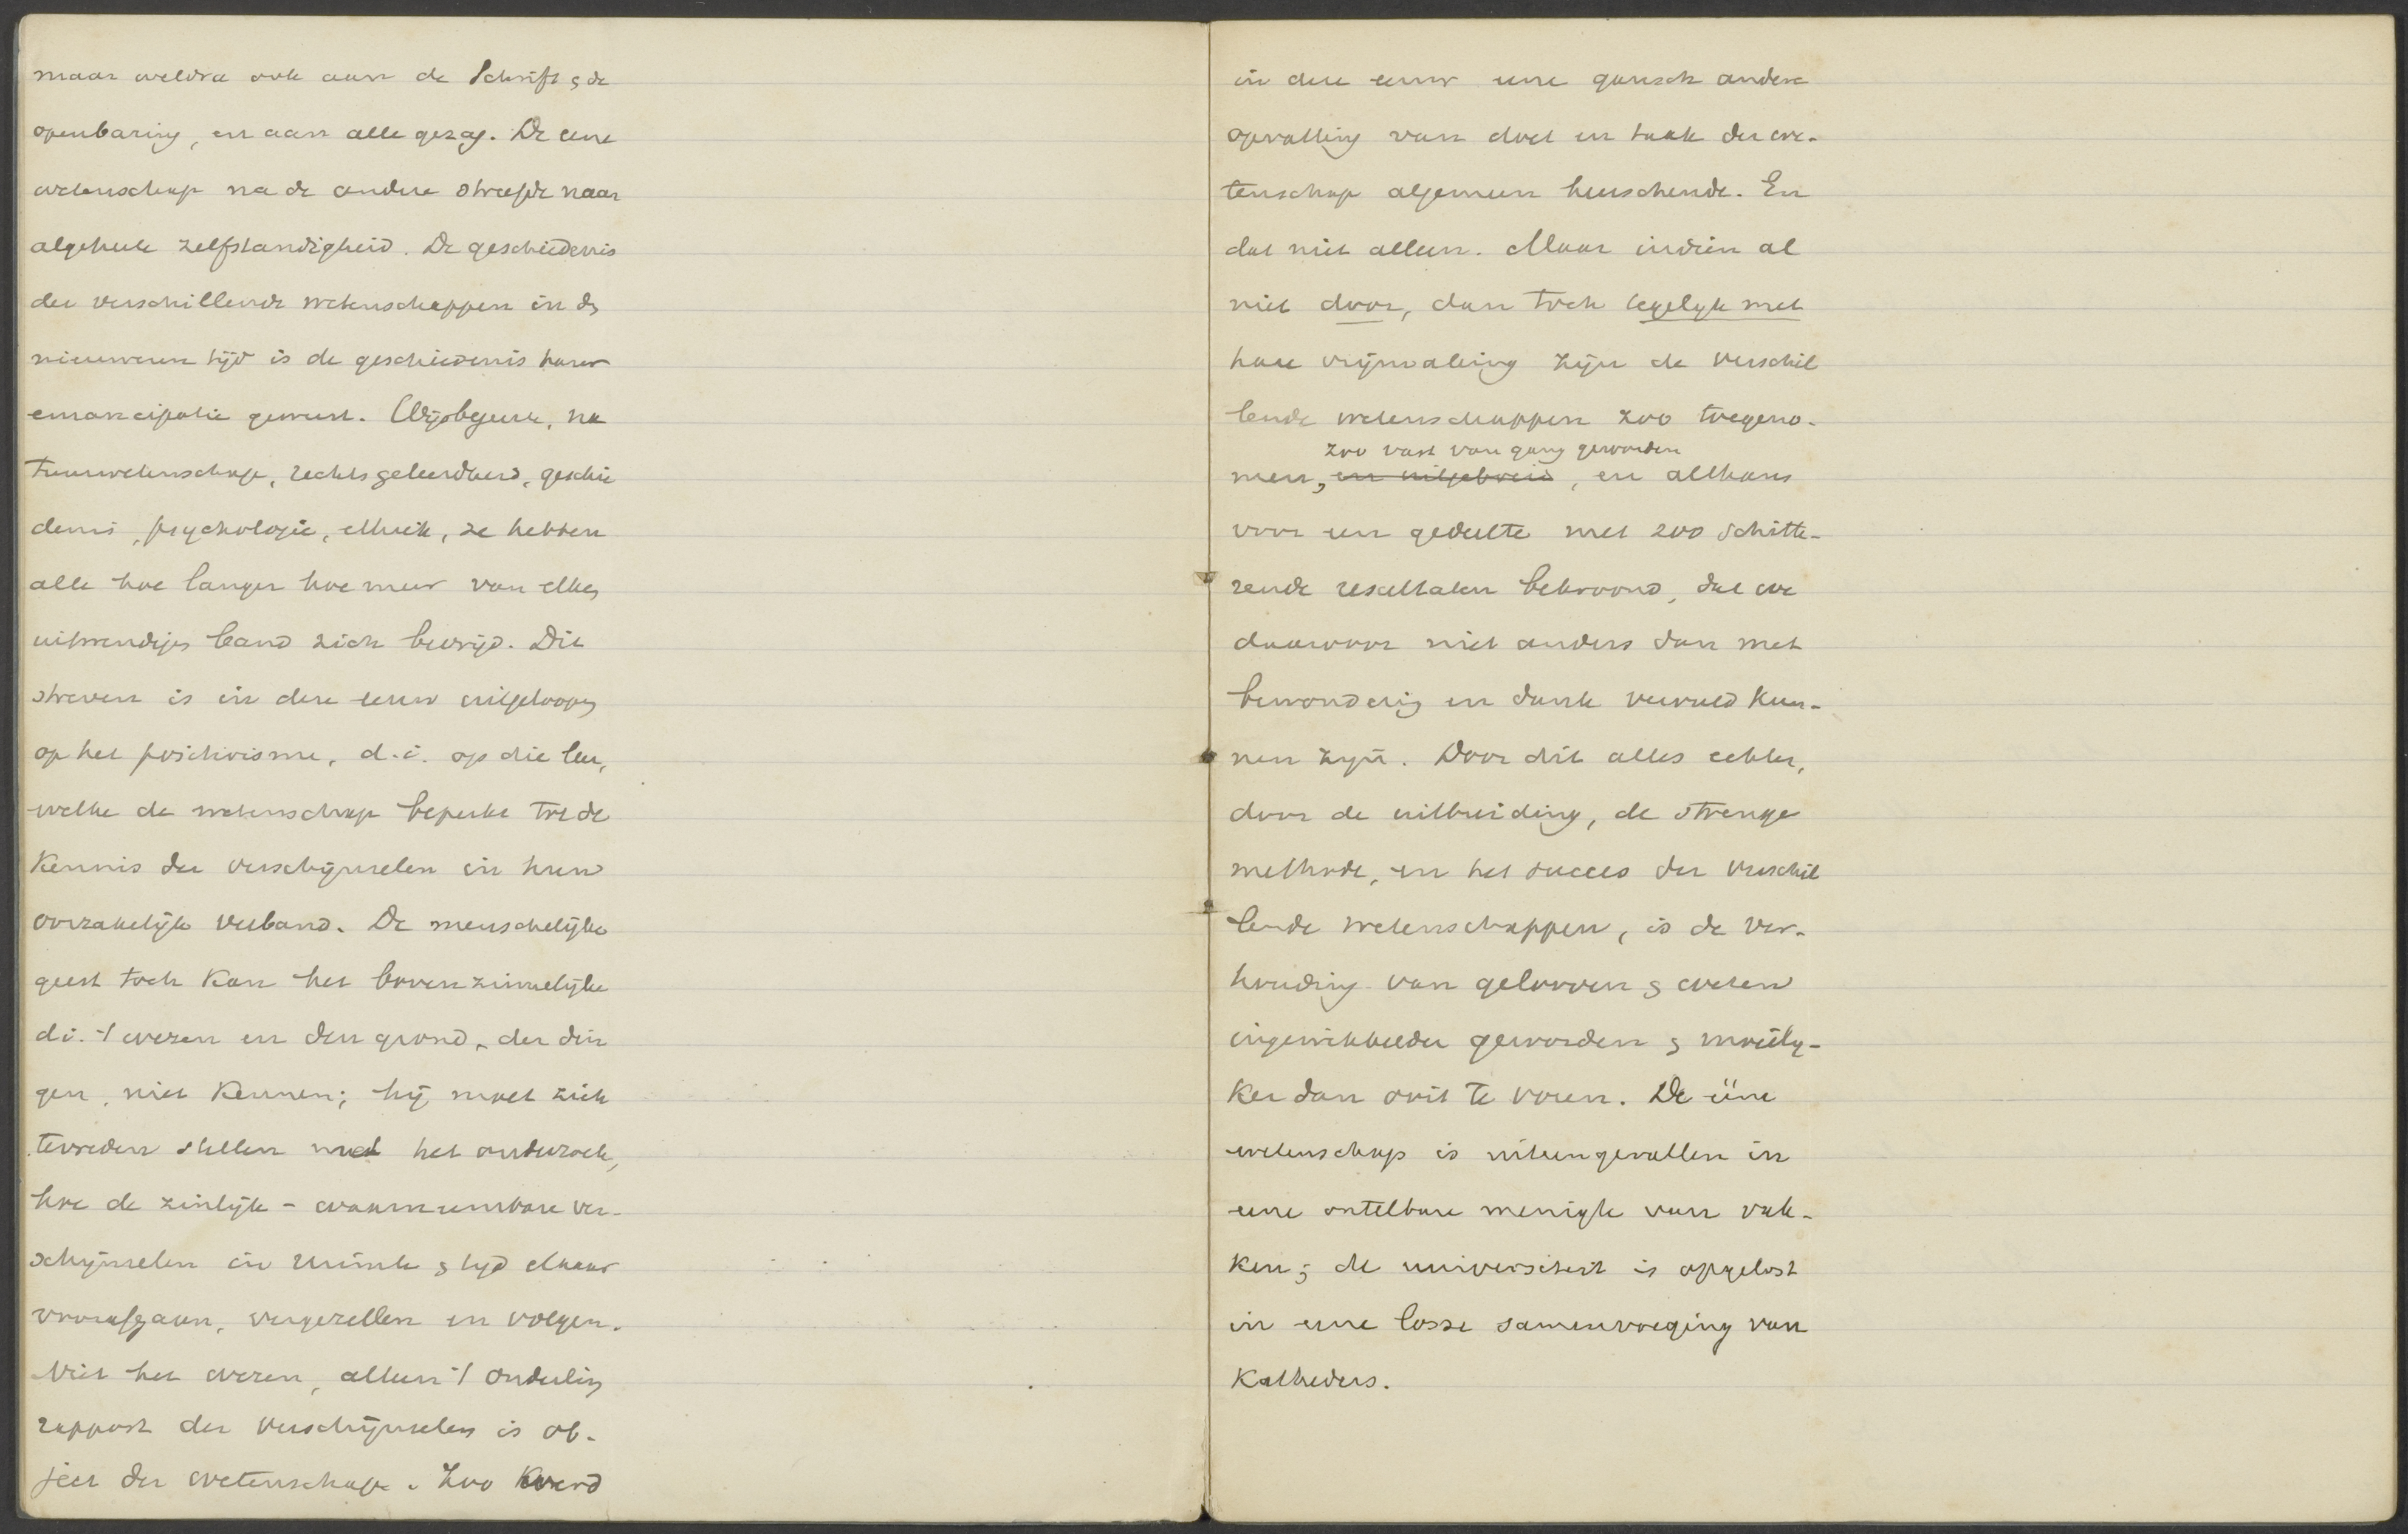 maar weldra ook aan de Schrift & de
openbaring, en aan alle gezag. De eene
wetenschap na de andere streefde naar
algeheele zelfstandigheid. De geschiedenis
der verschillende wetenschappen in d
nieuweren tijd is de geschiedenis harer
emancipatie geweest. Wijsbegeerte, na
tuurwetenschap, rechtsgeleerdheid, geschie
denis, psychologie, ethiek, ze hebben
alle hoe langer hoe meer van elken
uitwendigen band zich bevrijd. Dit
streven is in deze eeuw uitgeloopen
op het positivisme, d.i. op die leer,
welke de wetenschap beperkt tot de
kennis der verschijnselen in hun
oorzakelijk verband. De menschelijke
geest toch kan het bovenzinnelijke
d.i. 't wezen en den grond, der din
gen, niet kennen; hij moet zich
tevreden stellen met het onderzoek,
hoe de zinlijk-waarneembare ver-
schijnselen in ruimte & tijd elkaar
voorafgaan, vergezellen en volgen.
Niet het wezen, alleen 't onderling
rapport der verschijnselen is ob-
ject der wetenschap. Zoo werd
in deze eeuw eene gansch andere
opvatting van doel en taak der we-
tenschap algemeen heerschende. En
dat niet alleen. Maar indien al
niet door, dan toch tegelijk met
hare vrijmaking zijn de verschil
lende wetenschappen zoo toegeno-
zoo vast van gang geworden
men, en uitgebreid, en althans
voor een gedeelte met zoo schitte-
rende resultaten bekroond, dat we
daarvoor niet anders dan met
bewondering en dank vervuld kun-
nen zijn. Door dit alles echter,
door de uitbreiding, de strenge
methode, en het succes der verschil
lende wetenschappen, is de ver-
houding van gelooven & weten
ingewikkelder geworden & moeilij-
ker dan ooit te voren. De ééne
wetenschap is uiteengevallen in
eene ontelbare menigte van vak-
ken; de universiteit is opgelost
in eene losse samenvoeging van
Katheders.